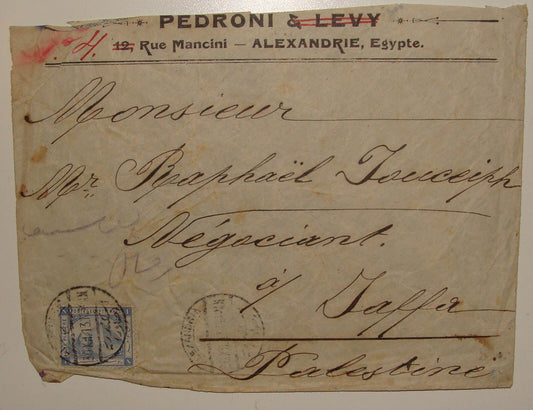 PEDRONI & LEVY
4. 12, Rue Mancini — ALEXANDRIE, Egypte.
Monsieur
Mr. Raphaël Jouceiph
Négociant.
à/ Jaffa
Palestine